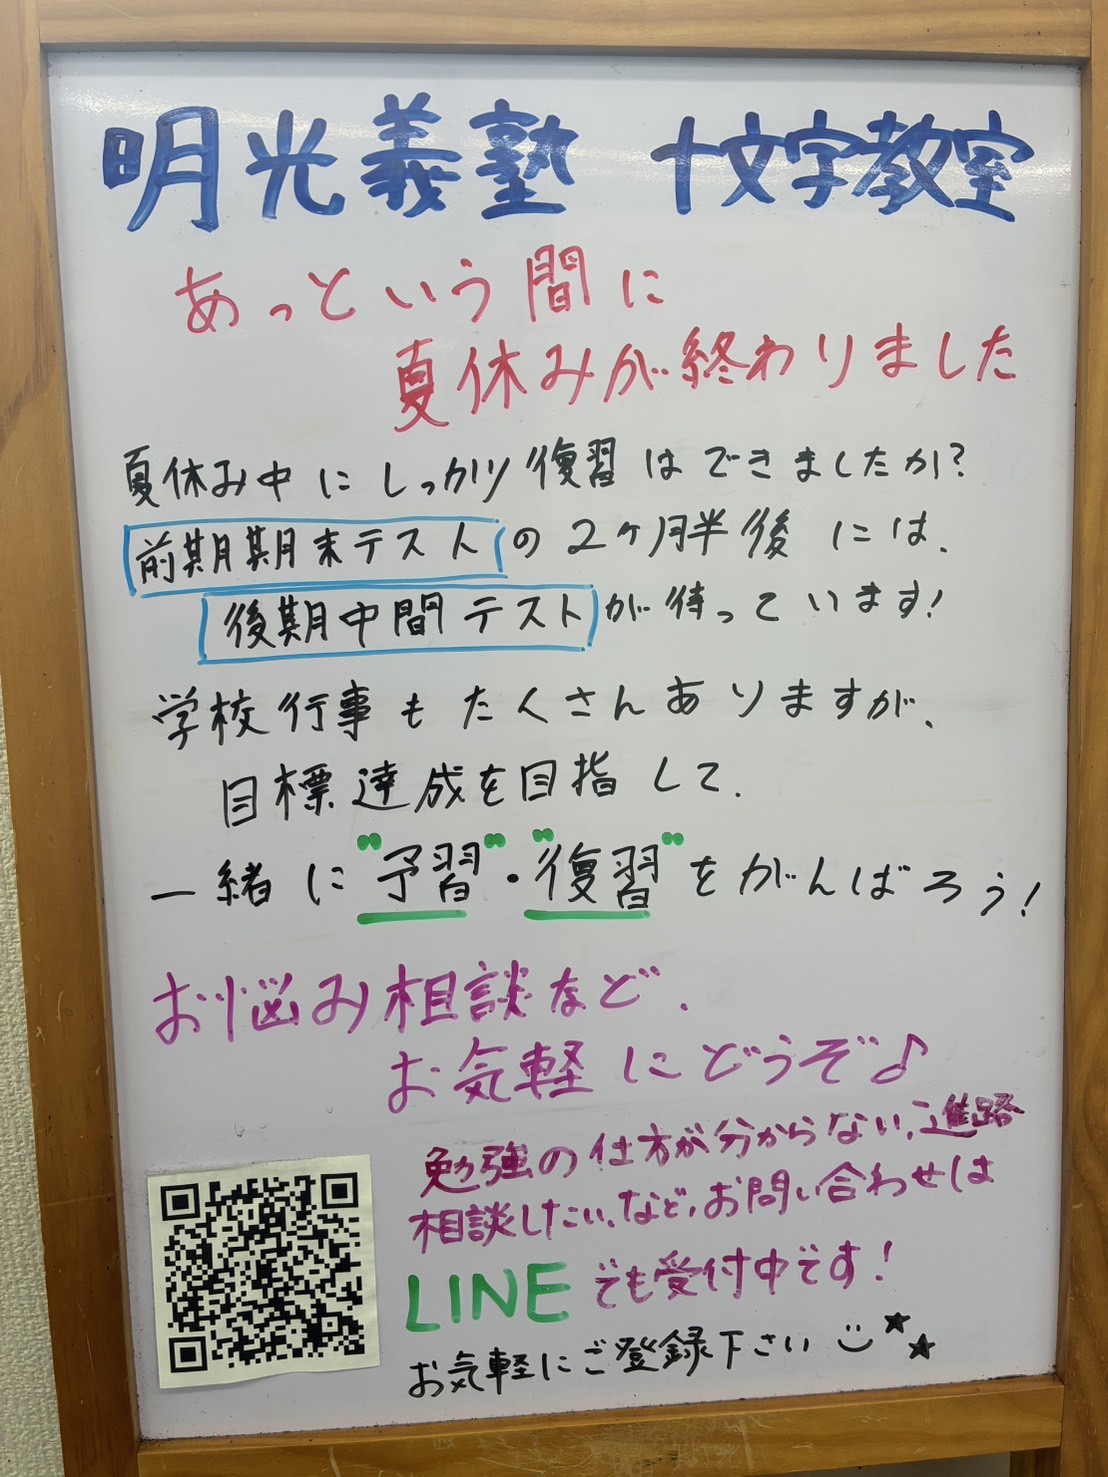 明光義塾 十文字教室
あっという間に
夏休みが終わりました
夏休み中にしっかり復習はできましたか?
前期期末テストの2ヶ月半後には、
後期中間テストが待っています!
学校行事もたくさんありますが、
目標達成を目指して、
一緒に"予習"・"復習"をがんばろう!
お悩み相談など、
お気軽にどうぞ♪
勉強の仕方が分からない、進路
相談したい、など、お問い合わせは
LINEでも受付中です!
お気軽にご登録下さい